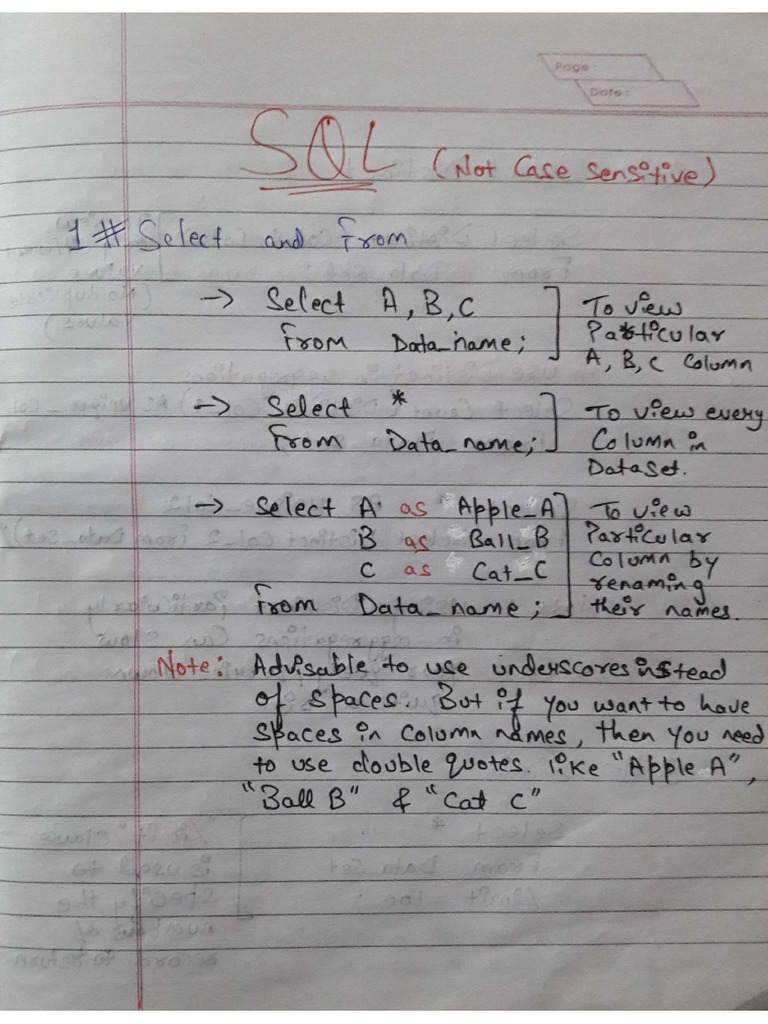 Page:
Date:
SQL (Not Case Sensitive)
1# Select and From
→ Select A, B, C ] To view
From Data_name; Particular
A, B, C Column
→ Select * ] To view every
From Data_name; Column in
DataSet.
→ Select A as Apple_A ] To view
B as Ball_B Particular
C as Cat_C Column by
renaming
From Data_name; their names.
Note: Advisable to use underscores instead
of spaces. But if you want to have
spaces in column names, then you need
to use double quotes. like "Apple A",
"Ball B" & "Cat C"